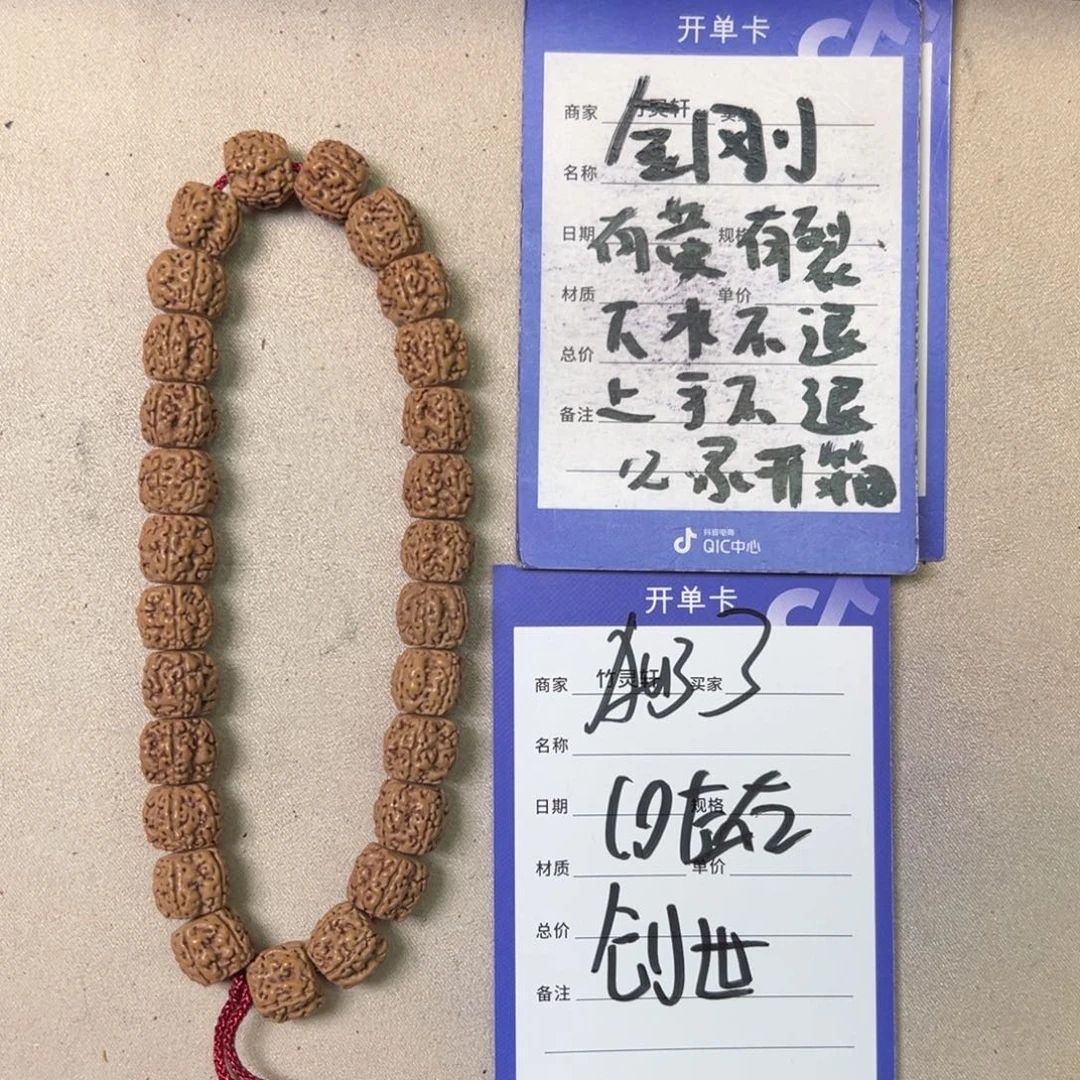 开单卡
商家 竹灵轩 买家
金刚
名称
日期 规格
有黄有裂
材质 单价
下水不退
总价
上手不退
备注
记录开箱
抖音电商
QIC中心
开单卡
商家 竹灵轩 买家
名称
日期 规格
材质 单价
总价
创世
备注